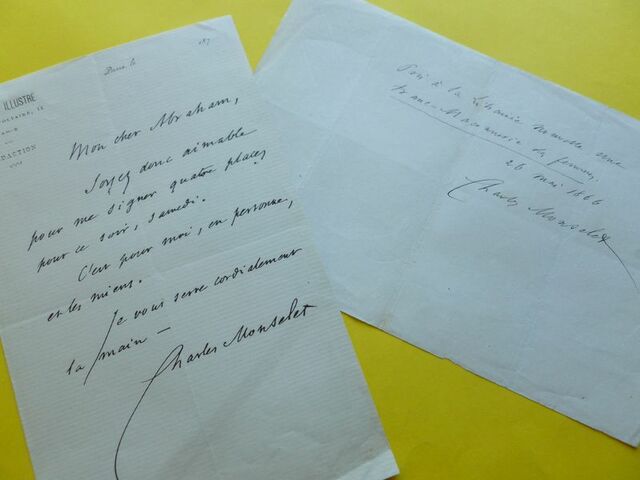 ILLUSTRE
Paris, le 187
Mon cher Abraham,
Soyez donc aimable
pour me signer quatre places
pour ce soir, samedi.
C'est pour moi, en personne,
et les miens.
Je vous serre cordialement
la main —
Charles Monselet
à la Librairie Nouvelle une
26 mai 1866
Charles Monselet